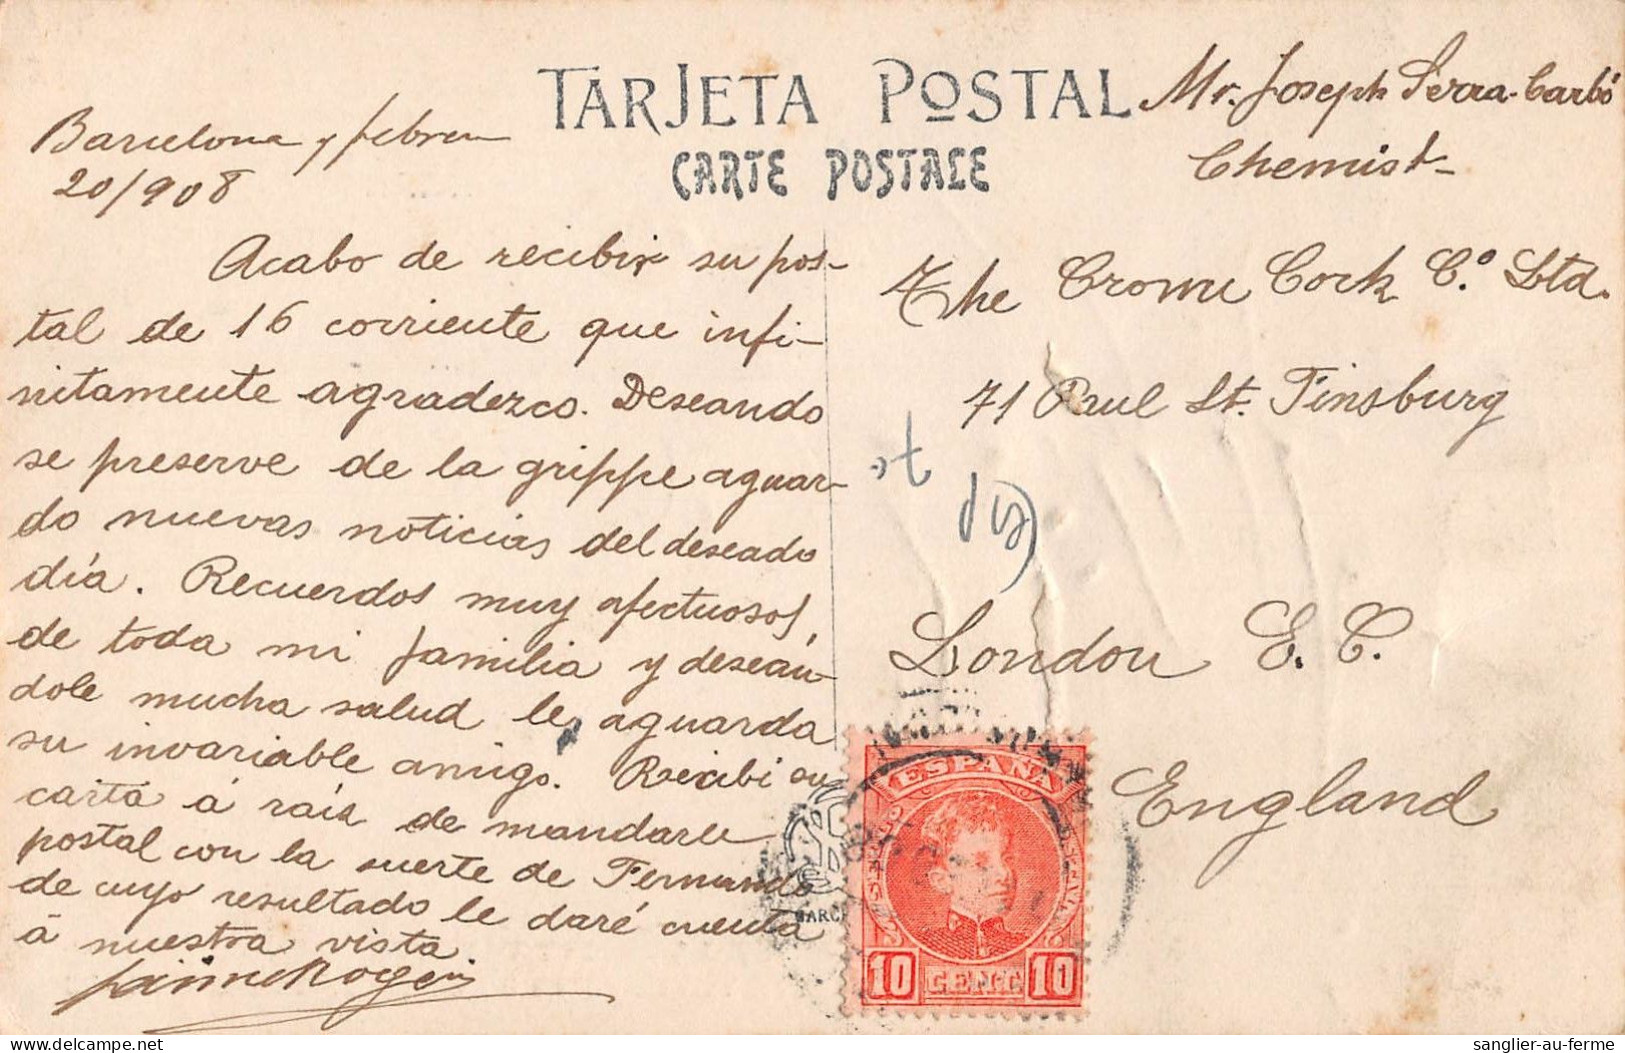 TARJETA POSTAL
CARTE POSTALE
Barcelona y febrero
20/908
Acabo de recibir su pos-
tal de 16 corriente que infi-
nitamente agradezco. Deseando
se preserve de la grippe aguar-
do nuevas noticias del deseado
día. Recuerdos muy afectuosos,
de toda mi familia y deseán-
dole mucha salud le aguarda
su invariable amigo. Recibí su
carta á raíz de mandarle
postal con la suerte de Fernando
de cuyo resultado le daré cuenta
á nuestra vista
Jaime
Mr. Joseph Serra-Carbó
Chemist-
The Crown Cork C.º Ltd.
71 Paul St. Finsburg
London E. C.
England
ESPAÑA
10 CENT. 10
sanglier-au-ferme
www.delcampe.net